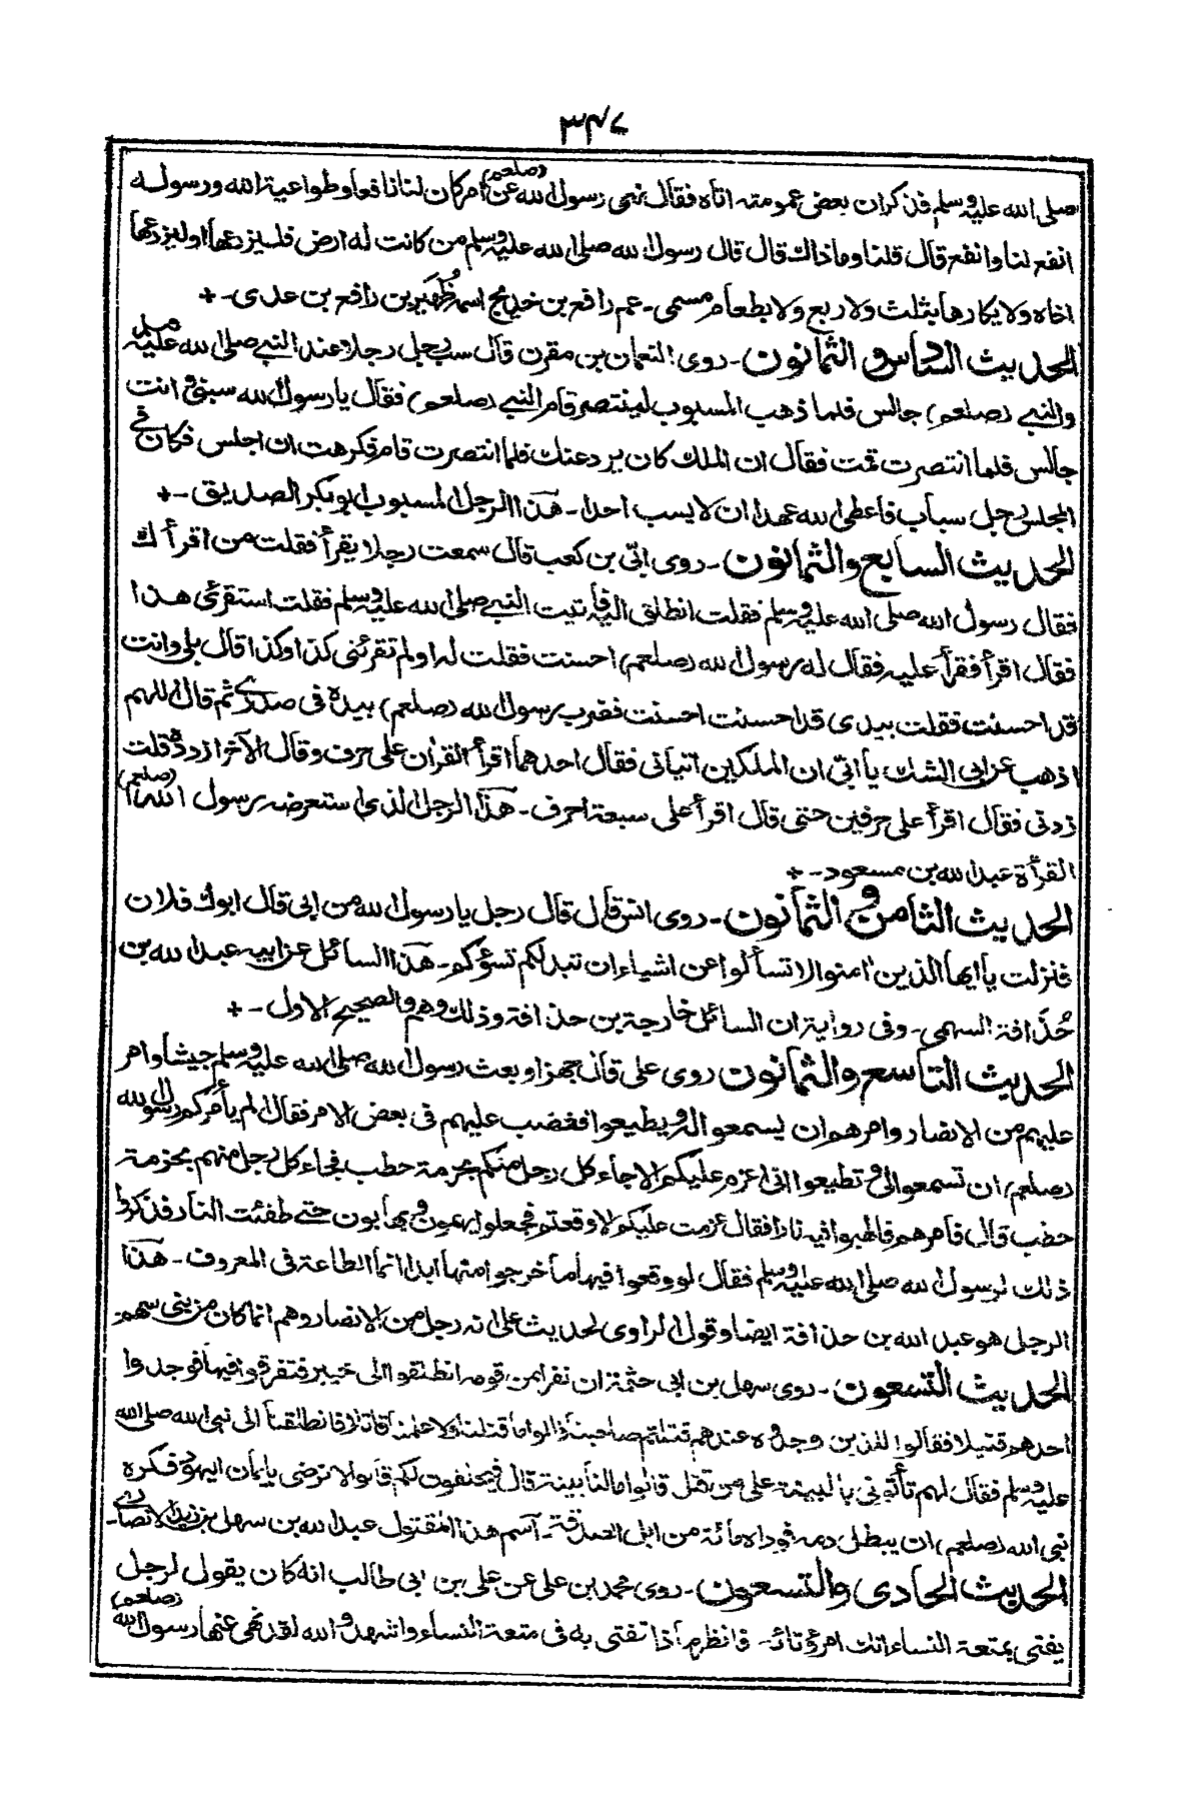 ٣٤٧
صلى الله عليه وسلم فذكر ان بعض عمومته اتاه فقال نهى رسول الله (صلعم) عن امر كان لنا نافعا وطواعية الله ورسوله
انفع لنا وانفع قال قلنا وما ذاك قال قال رسول الله صلى الله عليه وسلم من كانت له ارض فليزرعها او ليزرعها
اخاه ولا يكارها بثلث ولا ربع ولا بطعام مسمى - عم رافع بن خديج اسمه ظُهَير بن رافع بن عدى - +
الحديث السادس والثمانون - روى النعمان بن مقرن قال سب رجل رجلا وعند النبي صلى الله عليه وسلم
والنبي (صلعم) جالس فلما ذهب المسبوب لينتصر قام النبي (صلعم) فقال يا رسول الله سبنى وانت
جالس فلما انتصرت قمت فقال ان الملك كان يرد عنك فلما انتصرت قام فكرهت ان اجلس فكان فى
المجلس رجل سباب فاعطى الله عهدا ان لا يسب احدا - هذا الرجل المسبوب ابو بكر الصديق - +
الحديث السابع والثمانون - روى ابىّ بن كعب قال سمعت رجلا يقرأ فقلت من اقرأك
فقال رسول الله صلى الله عليه وسلم فقلت انطلق اليه فأتيت النبي صلى الله عليه وسلم فقلت استقرئ هذا
فقال اقرأ فقرأ عليه فقال له رسول الله (صلعم) احسنت فقلت له اولم تقرئنى كذا وكذا قال بلى وانت
قد احسنت فقلت بيدى قد احسنت احسنت فضرب رسول الله (صلعم) بيده فى صدرى ثم قال اللهم
اذهب عن ابى الشك يا ابى ان الملكين اتيانى فقال احدهما اقرأ القرآن على حرف وقال الآخر ازدده قلت
زدنى فقال اقرأ على حرفين حتى قال اقرأ على سبعة احرف - هذا الرجل الذى استعرضه رسول الله (صلعم)
القرأة عبد الله بن مسعود - +
الحديث الثامن والثمانون - روى انس قال قال رجل يا رسول الله من ابى قال ابوك فلان
فنزلت يا ايها الذين امنوا لا تسألوا عن اشياء ان تبد لكم تسؤكم - هذا السائل عن ابيه عبد الله بن
حُذافة السهمى - وفى رواية ان السائل خارجة بن حذافة وذلك وهم والصحيح الاول - +
الحديث التاسع والثمانون روى على قال جهز او بعث رسول الله صلى الله عليه وسلم جيشا وامر
عليهم من الانصار وامرهم ان يسمعوا له ويطيعوا فغضب عليهم فى بعض الامر فقال الم يأمركم رسول الله
(صلعم) ان تسمعوا لى وتطيعوا انى اعزم عليكم الا جاء كل رجل منكم بحزمة حطب فجاء كل رجل منهم بحزمة
حطب قال فامرهم فالهبوا فيه نارا فقال عزمت عليكم لا وقعتم فجعلوا يهمون ويهابون حتى طفئت النار فذكروا
ذلك لرسول الله صلى الله عليه وسلم فقال لو وقعوا فيها ما خرجوا منها ابدا انما الطاعة فى المعروف - هذا
الرجل هو عبد الله بن حذافة ايضا وقول الراوى لحديث على انه رجل من الانصار وهم انما كان من بنى سهم
الحديث التسعون - روى سهل بن ابى حثمة ان نفرا من قومه انطلقوا الى خيبر فتفرقوا فيها فوجدوا
احدهم قتيلا فقالوا للذين وجدوه عندهم قتلتم صاحبنا قالوا ما قتلنا ولا علمنا قاتلا فانطلقنا الى نبى الله صلى الله
عليه وسلم فقال لهم تأتونى بالبينة على من قتل قالوا ما لنا بينة قال فيحلفون لكم قالوا لا نرضى بايمان اليهود فكره
نبى الله (صلعم) ان يبطل دمه فوداه مائة من ابل الصدقة - اسم هذا المقتول عبد الله بن سهل بن زيد الانصارى -
الحديث الحادى والتسعون - روى محمد بن على عن على بن ابى طالب انه كان يقول لرجل
يفتى بمتعة النساء انك امرؤ تائه فانظر ما ذا تفتى به فى متعة النساء واشهد والله لقد نهى عنها رسول الله (صلعم)